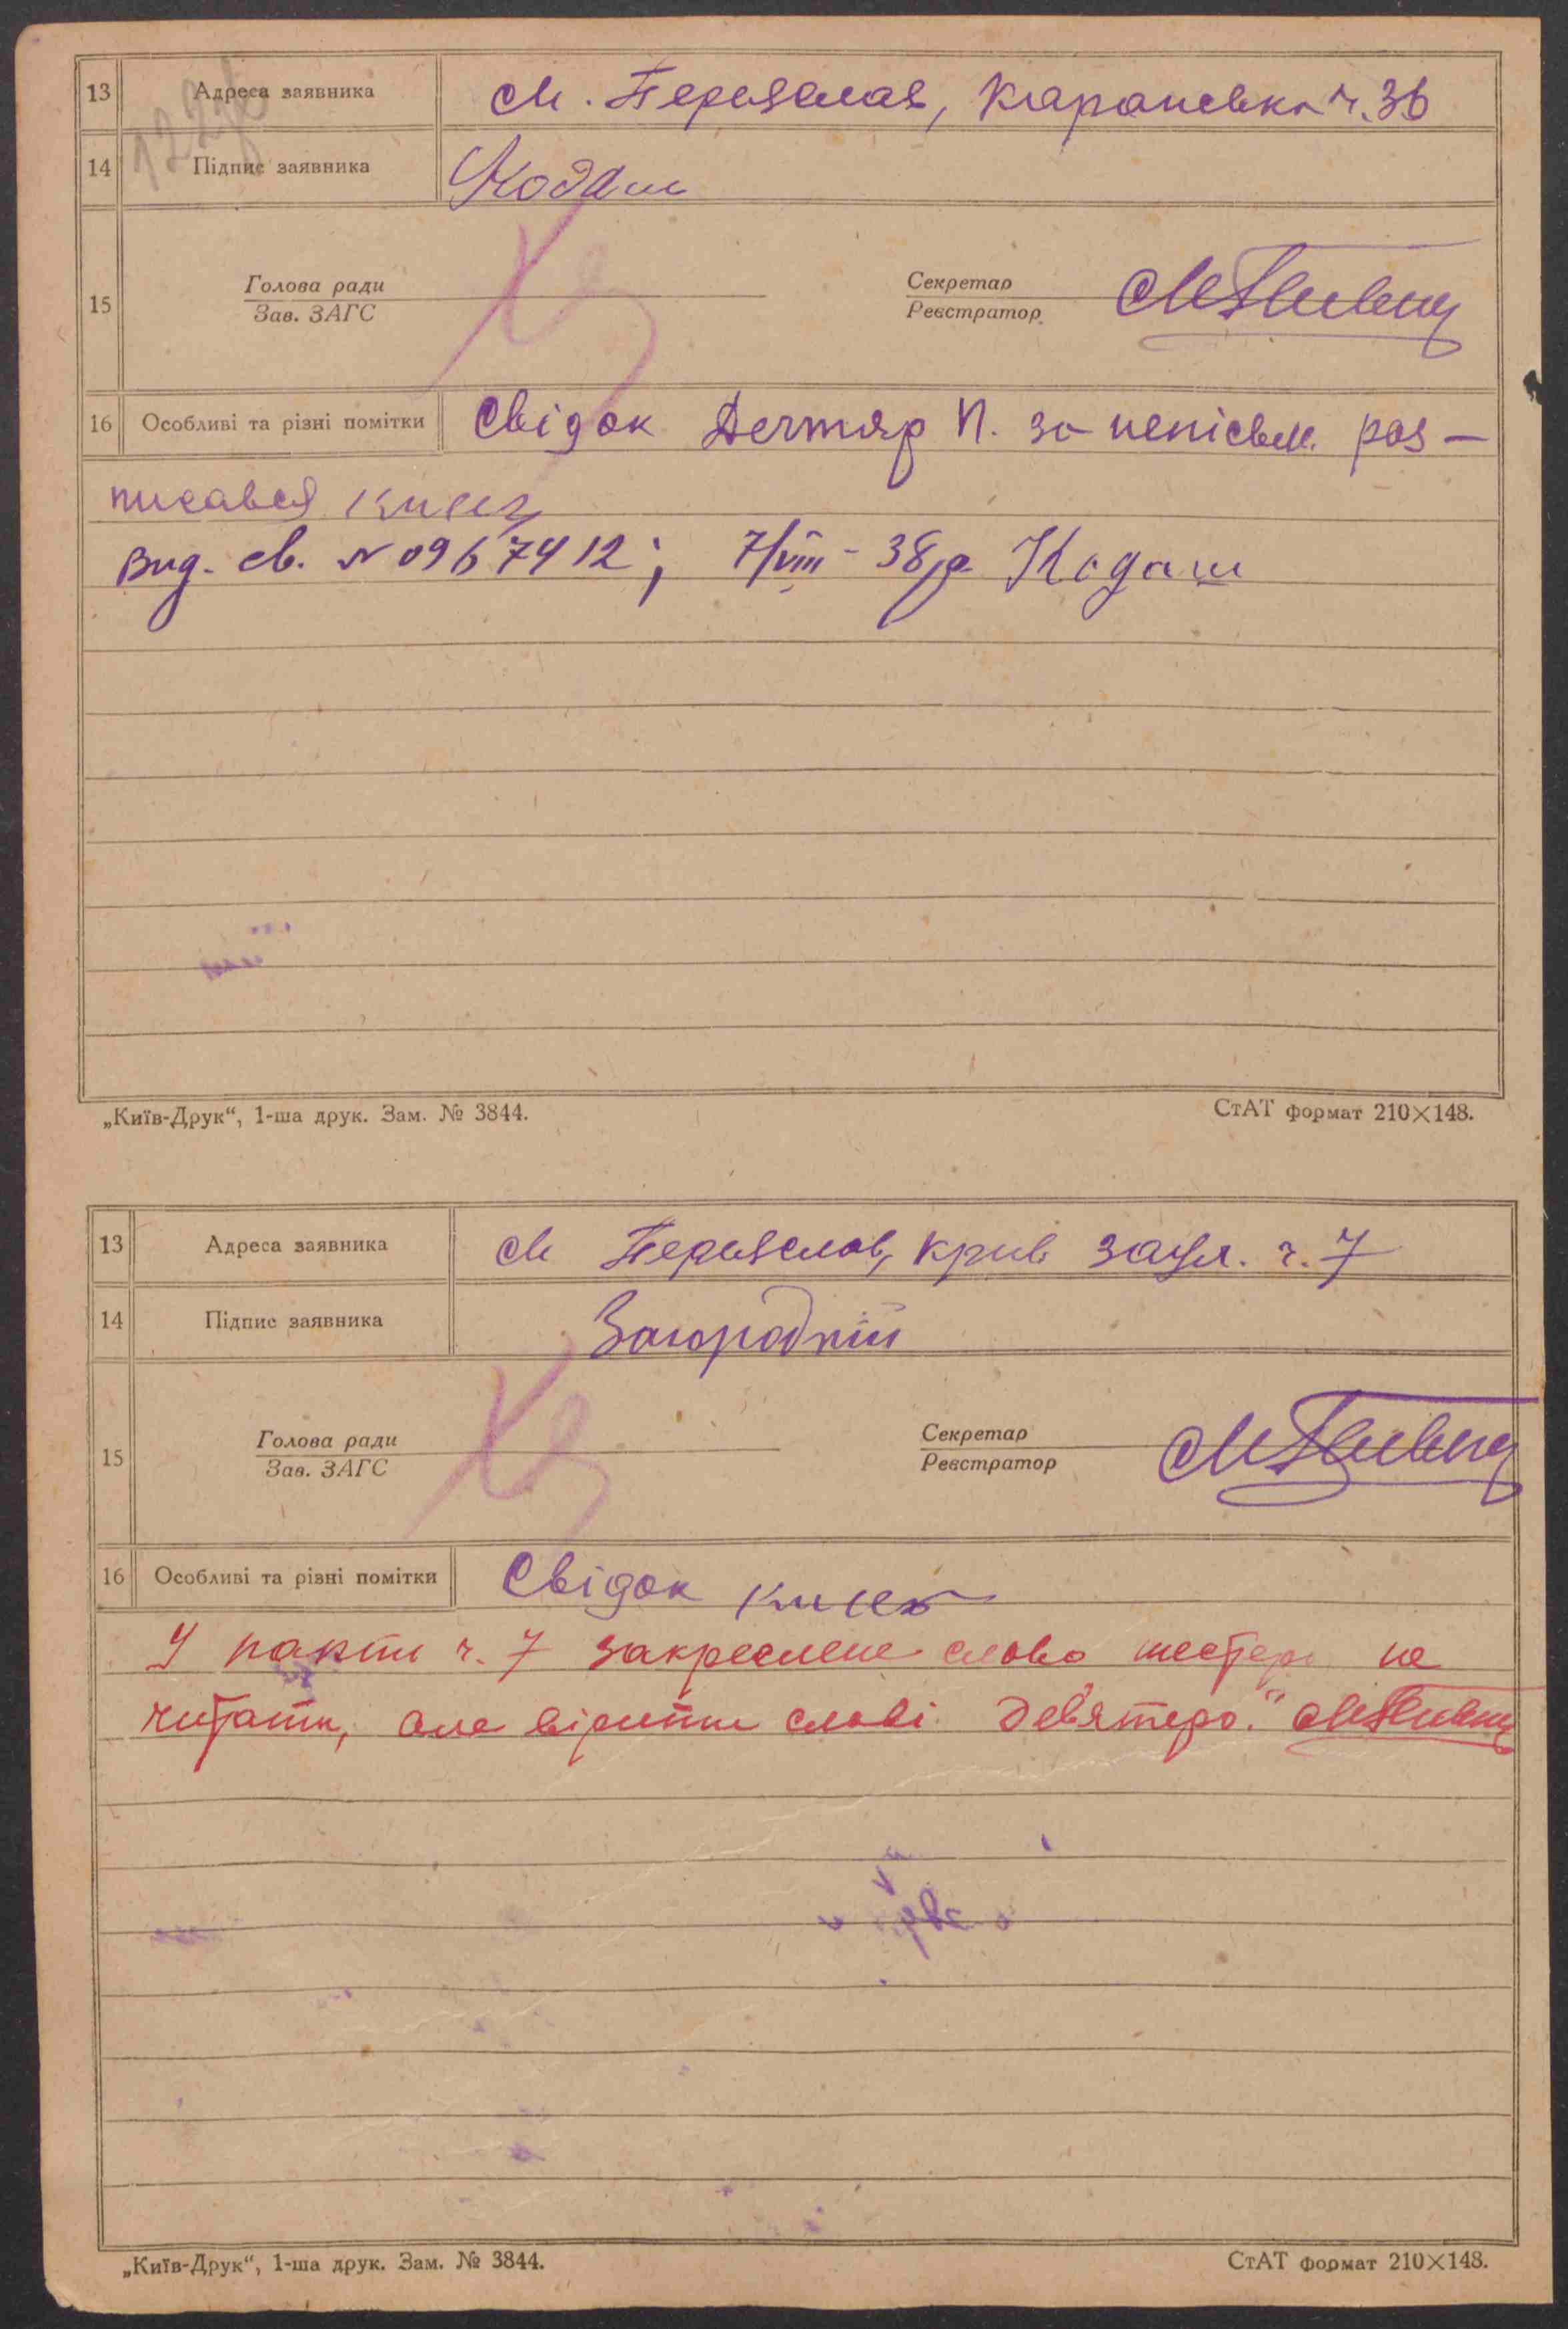 13 Адреса заявника м. Переяслав, Каранська ч. 36
14 Підпис заявника Кодаш
15 Голова ради Секретар
Зав. ЗАГС Реєстратор
16 Особливі та різні помітки Свідок Дегтяр П. за непісьм. роз-
писався
Вид. св. № 0967412; 7/VIII - 38р Кодаш
„Київ-Друк“, 1-ша друк. Зам. № 3844. СтАТ формат 210×148.
13 Адреса заявника м Переяслав, Крив заул. ч. 7
14 Підпис заявника Загородній
15 Голова ради Секретар
Зав. ЗАГС Реєстратор
16 Особливі та різні помітки Свідок
У ч. 7 закреслене слово шестеро не
читати, але вірити слові Дев'ятеро."
„Київ-Друк“, 1-ша друк. Зам. № 3844. СтАТ формат 210×148.